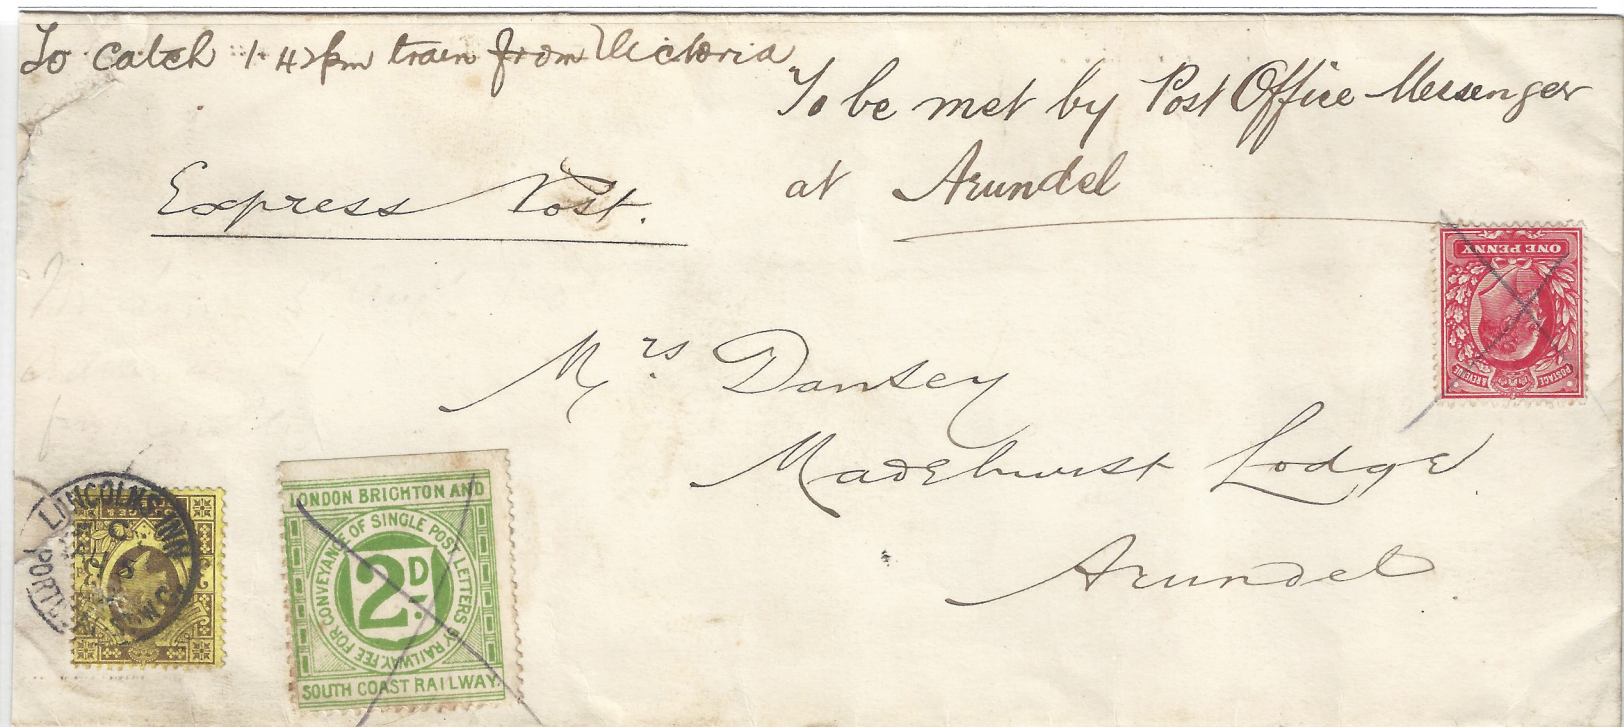 To catch 1.47pm train from Victoria
To be met by Post Office Messenger
at Arundel
Express Post.
ONE PENNY
POSTAGE & REVENUE
Mrs Dansey
Madehurst Lodge
Arundel
LINCOLNS INN
W.C.
LONDON BRIGHTON AND
FEE FOR CONVEYANCE OF SINGLE POST LETTERS BY RAILWAY
2D
SOUTH COAST RAILWAY